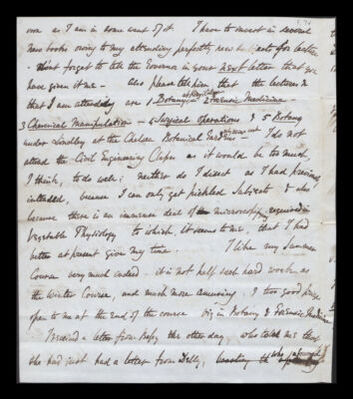 soon as I am in some want of it. I have to invest in several
new books owing to my attending perfectly new subjects for lectures
- Don't forget to tell the Governor in your next letter that you
have given it me - Also please tell him that the lectures
that I am attending are 1 Botanical 2 Forensic Medicine
3 Chemical Manipulation - 4 Surgical operations & 5 Botany
under Lindley at the Chelsea Botanical Gardens I do not
attend the Civil Engineering Classes as it would be too much
I think, to do well; neither do I dissect as I had previously
intended, because I can only get pickled Subjects & also
because there is an immense deal of microscopy required in
Vegetable Physiology to which, it seems to me, that I had
better at present give my time. I like my Summer
Course very much indeed. it is not half such hard work as
the Winter Course, and much more amusing. 2 too good prizes
open to me at the end of the course Viz in Botany & Forensic Medicine
I received a letter from the other day, who tells me that
she had just had a letter from